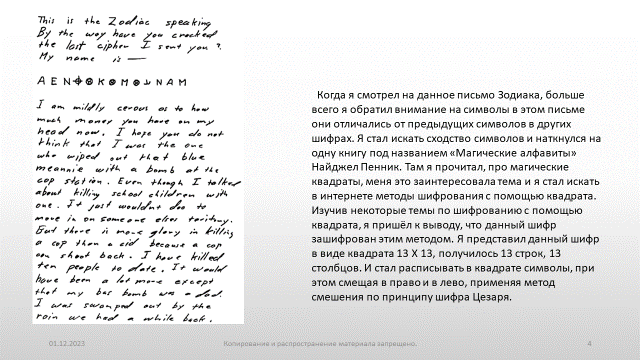 This is the Zodiac speaking
By the way have you cracked
the last cipher I sent you ?
My name is —
A E N ⌖ ⊗ K ⊗ M ⊗ ⅃ N A M
I am mildly cerous as to how
much money you have on my
head now. I hope you do not
think that I was the one
who wiped out that blue
meannie with a bomb at the
cop station. Even though I talked
about killing school children with
one. It just wouldnt doo to
move in on someone elses teritory.
But there is more glory in killing
a cop than a cid because a cop
can shoot back. I have killed
ten people to date. It would
have been a lot more except
that my bus bomb was a dud.
I was swamped out by the
rain we had a while back.
Когда я смотрел на данное письмо Зодиака, больше
всего я обратил внимание на символы в этом письме
они отличались от предыдущих символов в других
шифрах. Я стал искать сходство символов и наткнулся на
одну книгу под названием «Магические алфавиты»
Найджел Пенник. Там я прочитал, про магические
квадраты, меня это заинтересовала тема и я стал искать
в интернете методы шифрования с помощью квадрата.
Изучив некоторые темы по шифрованию с помощью
квадрата, я пришёл к выводу, что данный шифр
зашифрован этим методом. Я представил данный шифр
в виде квадрата 13 Х 13, получилось 13 строк, 13
столбцов. И стал расписывать в квадрате символы, при
этом смещая в право и в лево, применяя метод
смешения по принципу шифра Цезаря.
01.12.2023
Копирование и распространение материала запрещено.
4